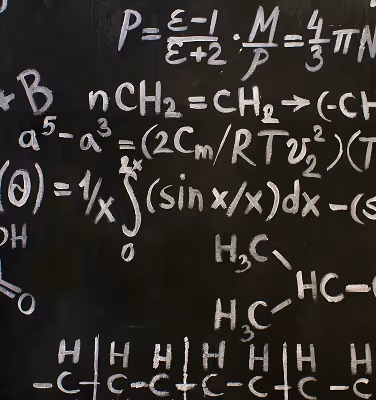 P = ε-1/ε+2 · M/P = 4/3 πN
+ B nCH₂ = CH₂ → (-CH
a⁵ - a³ = (2Cm/RTv₂²)(T
(θ) = 1/x ∫₀²ˣ (sin x/x)dx - (s
OH
H₃C
HC -
O
H₃C
H H H H H H H
- C - C - C - C - C - C - C